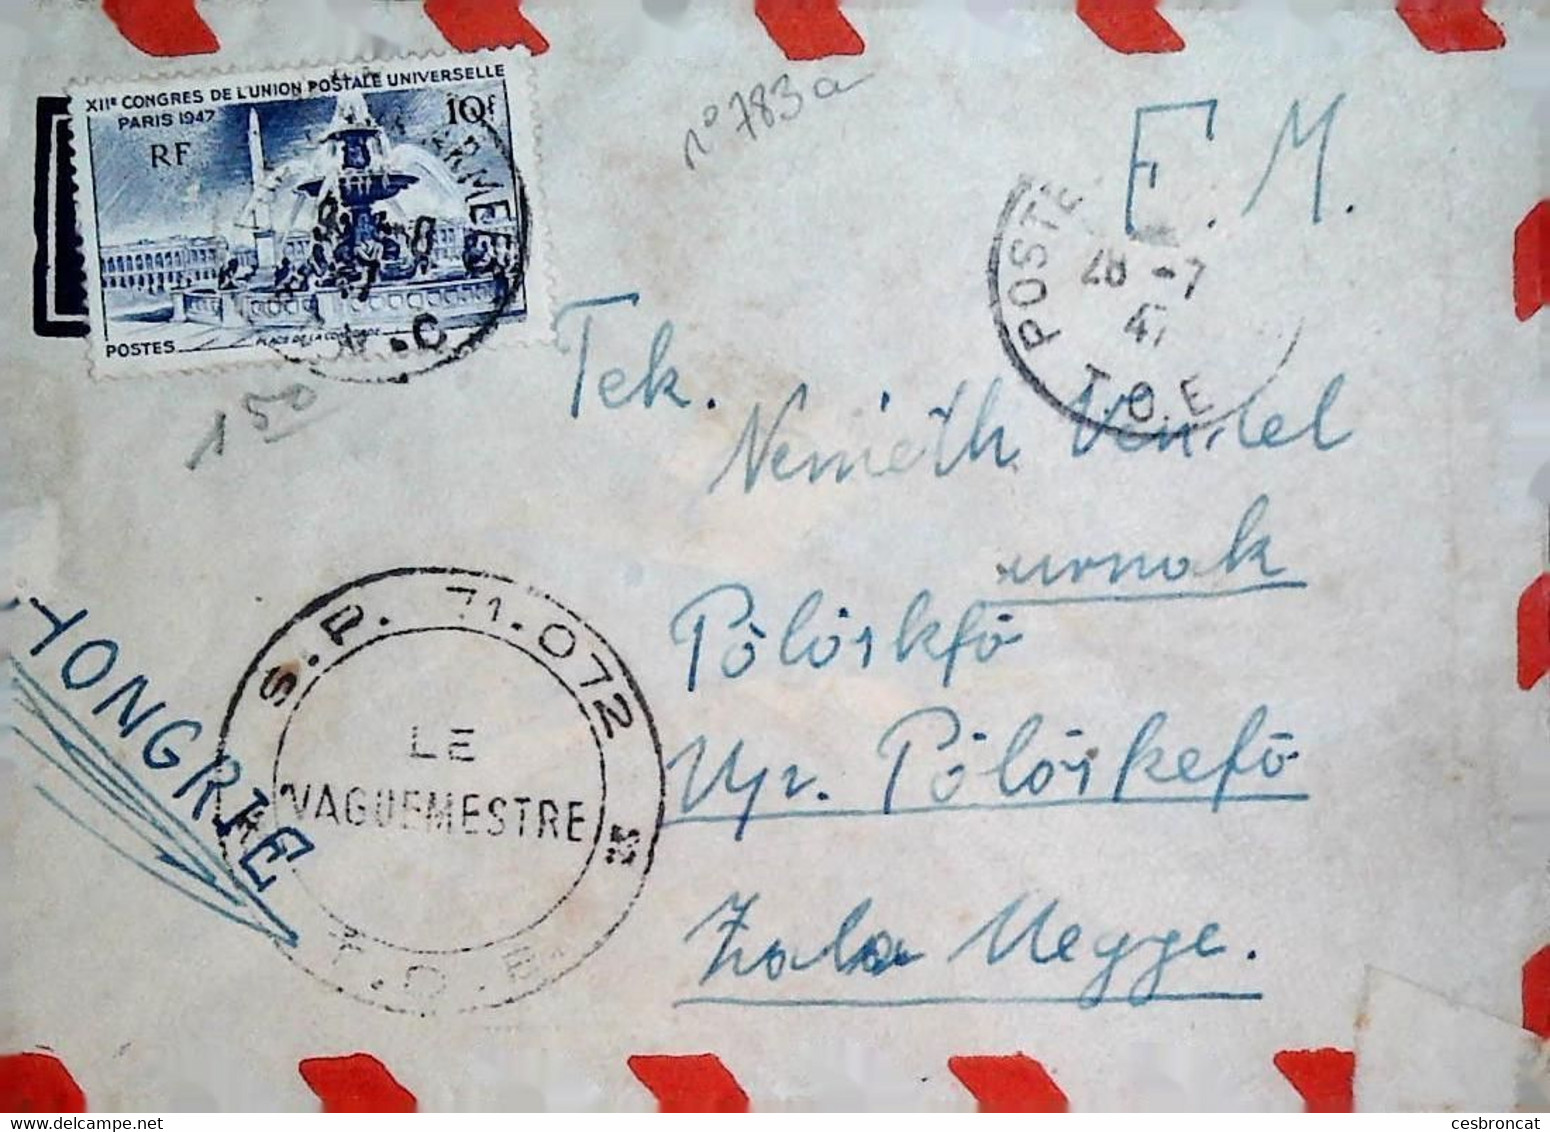 XIIe CONGRES DE L'UNION POSTALE UNIVERSELLE
PARIS 1947
10f
RF
POSTES
PLACE DE LA CONCORDE
A.C
n° 783a
F. M.
POSTE
28 -7
47
T.O.E
150
Tek.
Németh Vendel
urnak
Pölöskfö
Up. Pölöskefö
Zala Megye.
HONGRIE
S.P. 71.072
LE
VAGUEMESTRE
T.O.E.
cesbroncat